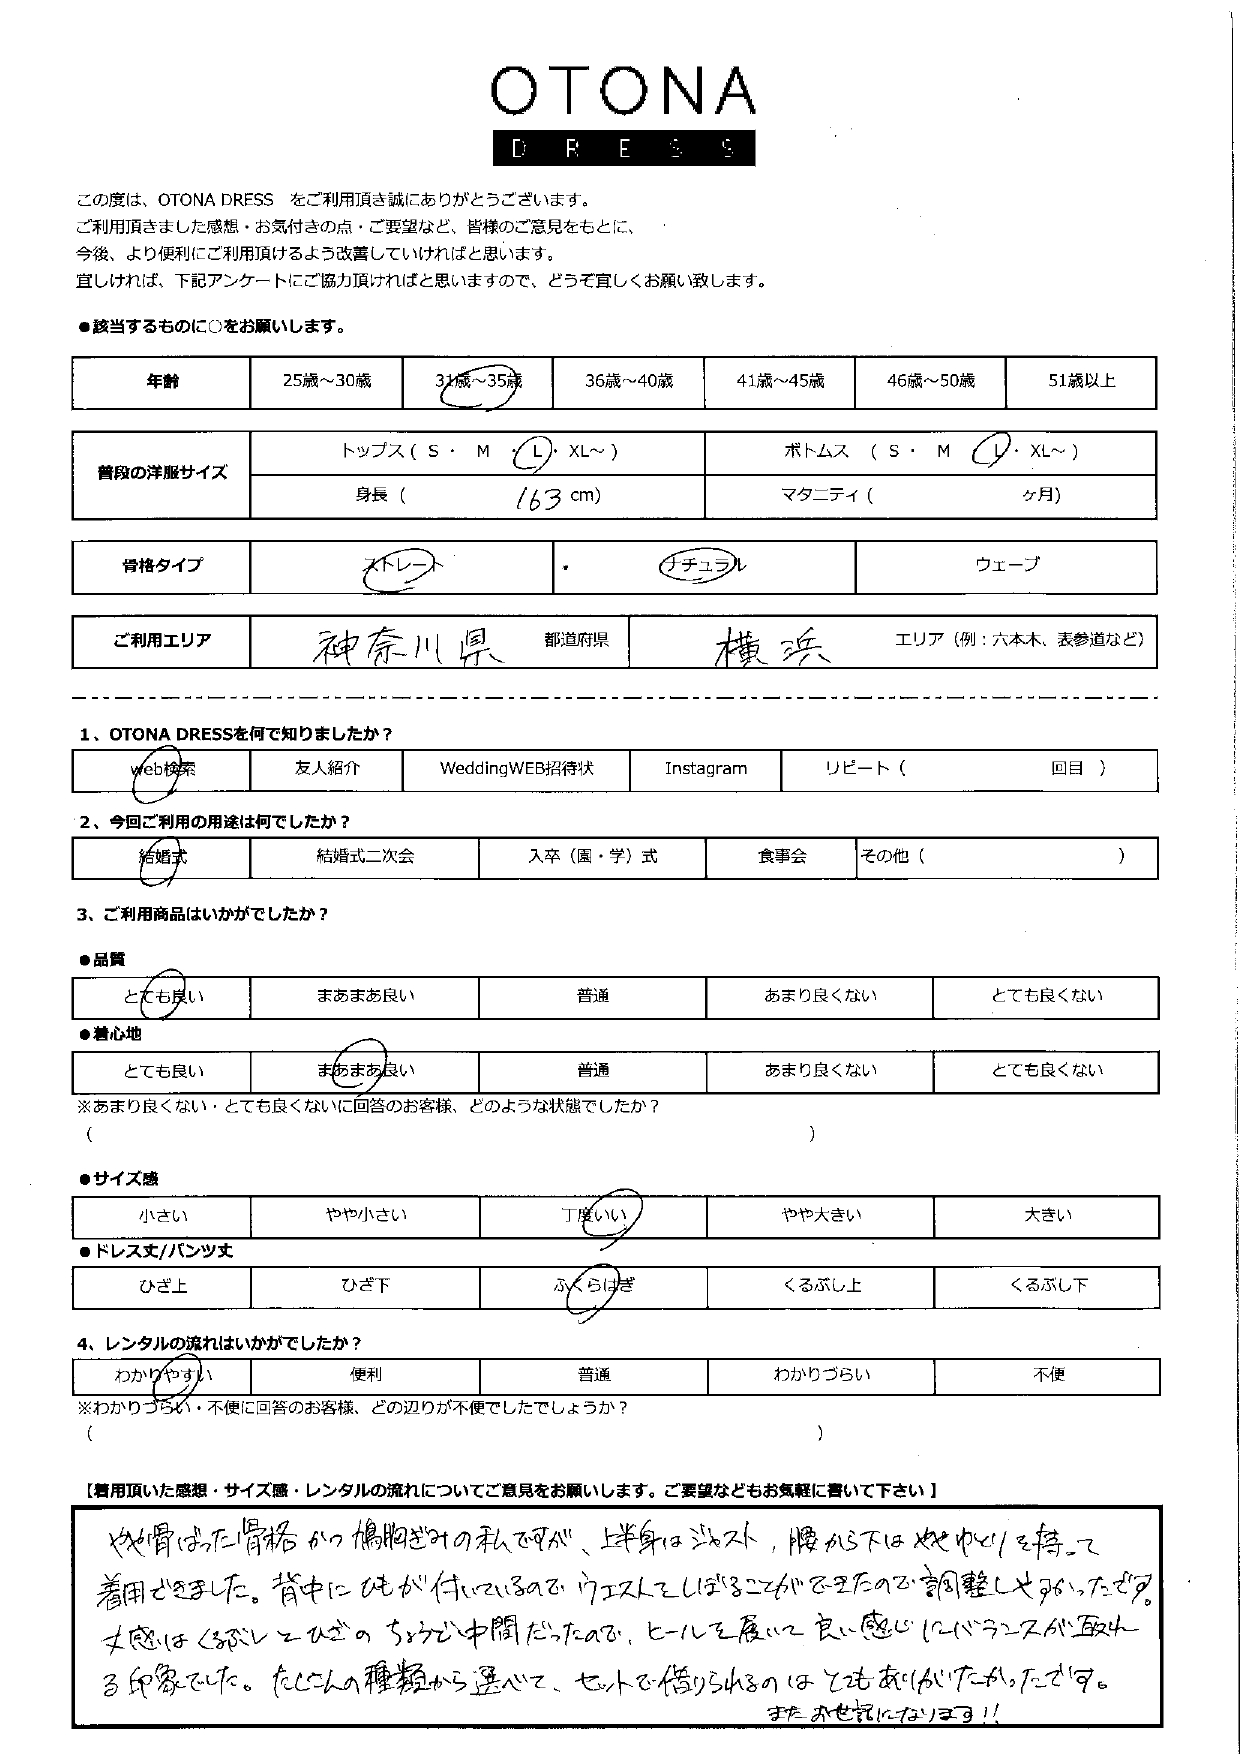 OTONA
DRESS
この度は、OTONA DRESS をご利用頂き誠にありがとうございます。
ご利用頂きました感想・お気付きの点・ご要望など、皆様のご意見をもとに、
今後、より便利にご利用頂けるよう改善していければと思います。
宜しければ、下記アンケートにご協力頂ければと思いますので、どうぞ宜しくお願い致します。
●該当するものに○をお願いします。
年齢 25歳～30歳 31歳～35歳 36歳～40歳 41歳～45歳 46歳～50歳 51歳以上
普段の洋服サイズ トップス ( S ・ M ・ L ・ XL～ ) ボトムス ( S ・ M ・ L ・ XL～ )
身長 ( 163 cm) マタニティ ( ヶ月)
骨格タイプ ストレート ・ ナチュラル ウェーブ
ご利用エリア 神奈川県 都道府県 横浜 エリア（例：六本木、表参道など）
1、OTONA DRESSを何で知りましたか？
web検索 友人紹介 WeddingWEB招待状 Instagram リピート ( 回目 )
2、今回ご利用の用途は何でしたか？
結婚式 結婚式二次会 入卒（園・学）式 食事会 その他 ( )
3、ご利用商品はいかがでしたか？
●品質
とても良い まあまあ良い 普通 あまり良くない とても良くない
●着心地
とても良い まあまあ良い 普通 あまり良くない とても良くない
※あまり良くない・とても良くないに回答のお客様、どのような状態でしたか？
( )
●サイズ感
小さい やや小さい 丁度いい やや大きい 大きい
●ドレス丈/パンツ丈
ひざ上 ひざ下 ふくらはぎ くるぶし上 くるぶし下
4、レンタルの流れはいかがでしたか？
わかりやすい 便利 普通 わかりづらい 不便
※わかりづらい・不便に回答のお客様、どの辺りが不便でしたでしょうか？
( )
【着用頂いた感想・サイズ感・レンタルの流れについてご意見をお願いします。ご要望などもお気軽に書いて下さい 】
やや骨ばった骨格かつ鳩胸ぎみの私ですが、上半身はジャスト、腰から下はややゆとりを持って
着用できました。背中にひもが付いているのでウエストをしぼることができたので調整しやすかったです。
丈感はくるぶしとひざのちょうど中間だったので、ヒールを履いて良い感じにバランスが取れ
る印象でした。たくさんの種類から選べて、セットで借りられるのはとてもありがたかったです。
またお世話になります!!